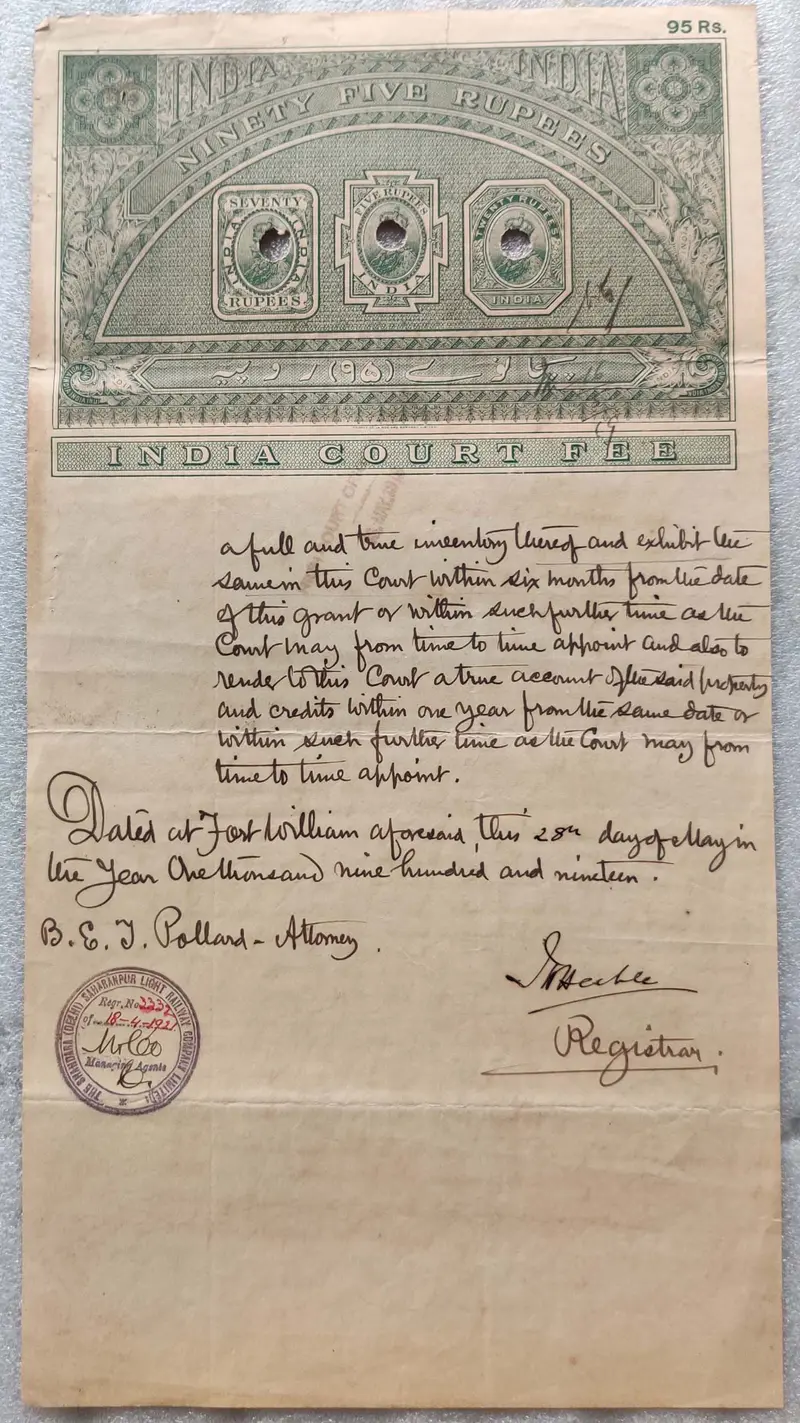 95 Rs.
INDIA INDIA
NINETY FIVE RUPEES
SEVENTY
INDIA INDIA
RUPEES
FIVE RUPEES
INDIA
TWENTY RUPEES
INDIA
پچانوے (۹۵) روپیہ
INDIA COURT FEE
a full and true inventory thereof and exhibit the
same in this Court within six months from the date
of this grant or within such further time as the
Court may from time to time appoint and also to
render to this Court a true account of the said property
and credits within one year from the same date or
within such further time as the Court may from
time to time appoint.
Dated at Fort William aforesaid, this 28th day of May in
the Year One thousand nine hundred and nineteen.
B. E. J. Pollard - Attorney.
Registrar.
THE SHAHDARA (DELHI) SAHARANPUR LIGHT RAILWAY COMPANY LIMITED
Regr. No 3332
of 18-4-1921
Managing Agents